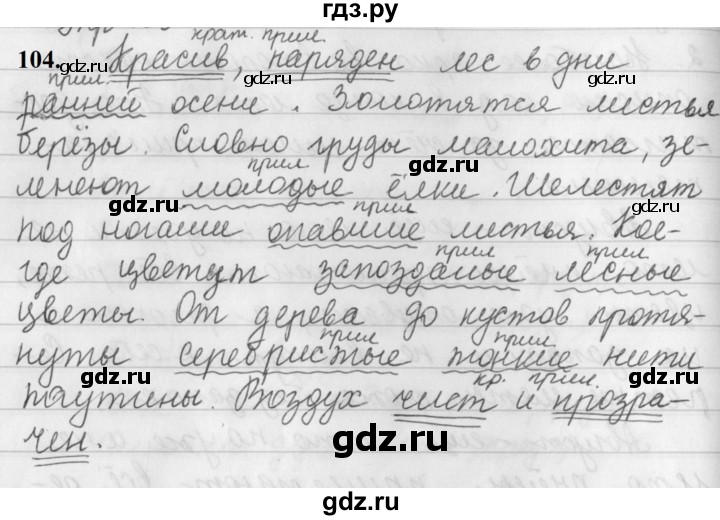 гдз.ру
крат. прил.
104. Красив, наряден лес в дни
прил.
ранней осени. Золотятся листья
берёзы. Словно груды малахита, зе-
прил
ленеют молодые ёлки. Шелестят
прил
под ногами опавшие листья. Кое-
прил прил
где цветут запоздалые лесные
цветы. От дерева до кустов протя-
прил прил
нуты серебристые тонкие нити
кр. прил.
паутины. Воздух чист и прозра-
чен.
gdz.ru
gdz.ru
gdz.ru
gdz.ru
gdz.ru
gdz.ru
gdz.ru
gdz.ru
gdz.ru
gdz.ru
gdz.ru